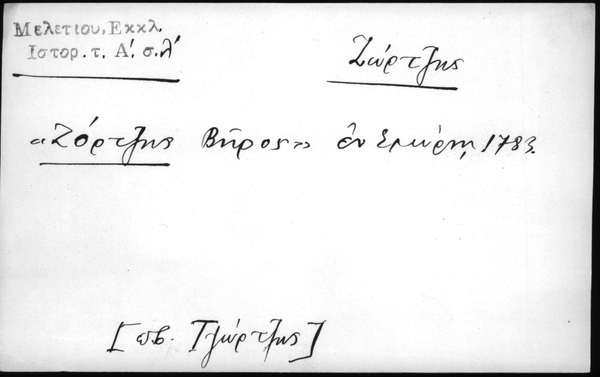 Μελετίου, Εκκλ.
Ιστορ. τ. Α΄. σ. λ΄
Ζώρτζης
«Ζόρτζης Βῆρος» ἐν Σμύρνῃ, 1783.
[πβ. Τζώρτζης]